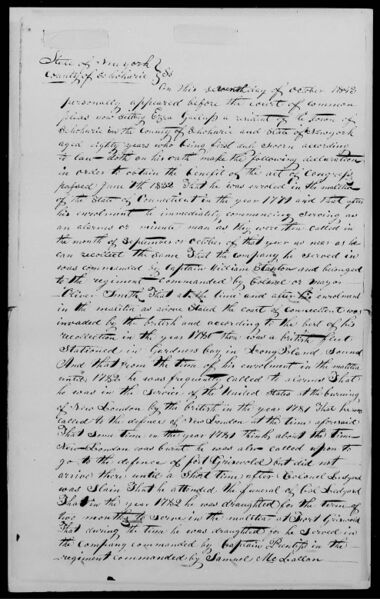 State of New york }
County of Schoharie } SS
On this seventh day of October 1842
personally appeared before the court of common
pleas now sitting Ezra Gallup a resident of the town of
Schoharie in the County of Schoharie and State of New york
aged eighty years who being first due sworn according
to law doth on his oath make the following declaration
in order to obtain the benefit of the act of Congress
passed June 7th 1832 That he was enroled in the militia
of the State of Connecticut in the year 1781 and that after
his enrolment he immediately commencing serving as
an alarms or minute man as they were then called in
the month of September or October of that year as near as he
can recollect the same That the company he served in
was commanded by Captain William and belonged
to the regiment commanded by Colonel or mayor
Oliver Smith That at the time and after his enrolment
in the militia as above stated the coast of Connecticut was
invaded by the british and according to the best of his
recollection in the year 1781 there was a british fleet
Stationed in Gardners bay in Long Island Sound
And that from the time of his enrolment in the militia
until 1782 he was frequently called to alarms That
he was in the Service of the United States at the burning
of New London by the british in the year 1781 That he was
called to the defence of New London at the time aforesaid
That Some time in the year 1781 thinks about the time
New London was burnt he was also called upon to
go to the defence of fort Griswold but did not
arrive there until a Short time after Colonel Ledyard
was Slain That he attended the funeral of Col Ledyard
That in the year 1782 he was draughted for the term of
two months to serve in the militia at Fort Griswold
That during the time he was draughted for he Served in
the Company commanded by Captain in the
regiment commanded by Samuel McLellan